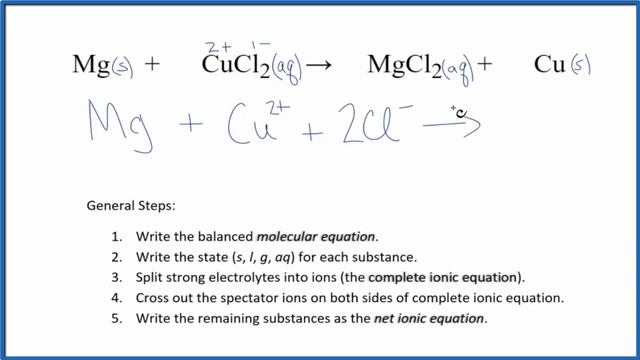 2+ 1-
Mg(s) + CuCl₂(aq) → MgCl₂(aq) + Cu(s)
Mg + Cu²⁺ + 2Cl⁻ →
General Steps:
1. Write the balanced molecular equation.
2. Write the state (s, l, g, aq) for each substance.
3. Split strong electrolytes into ions (the complete ionic equation).
4. Cross out the spectator ions on both sides of complete ionic equation.
5. Write the remaining substances as the net ionic equation.